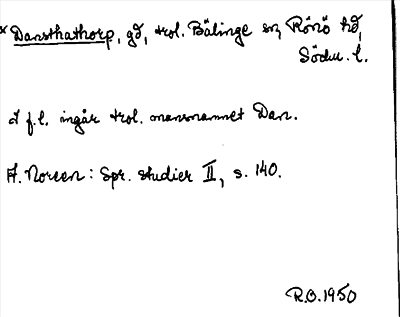 * Dansthathorp, gd, trol. Bälinge sn, Rönö hd,
Södm. l.
I f.l. ingår trol. mansnamnet Dan.
A. Noreen: Spr. studier II, s. 140.
R.O. 1950